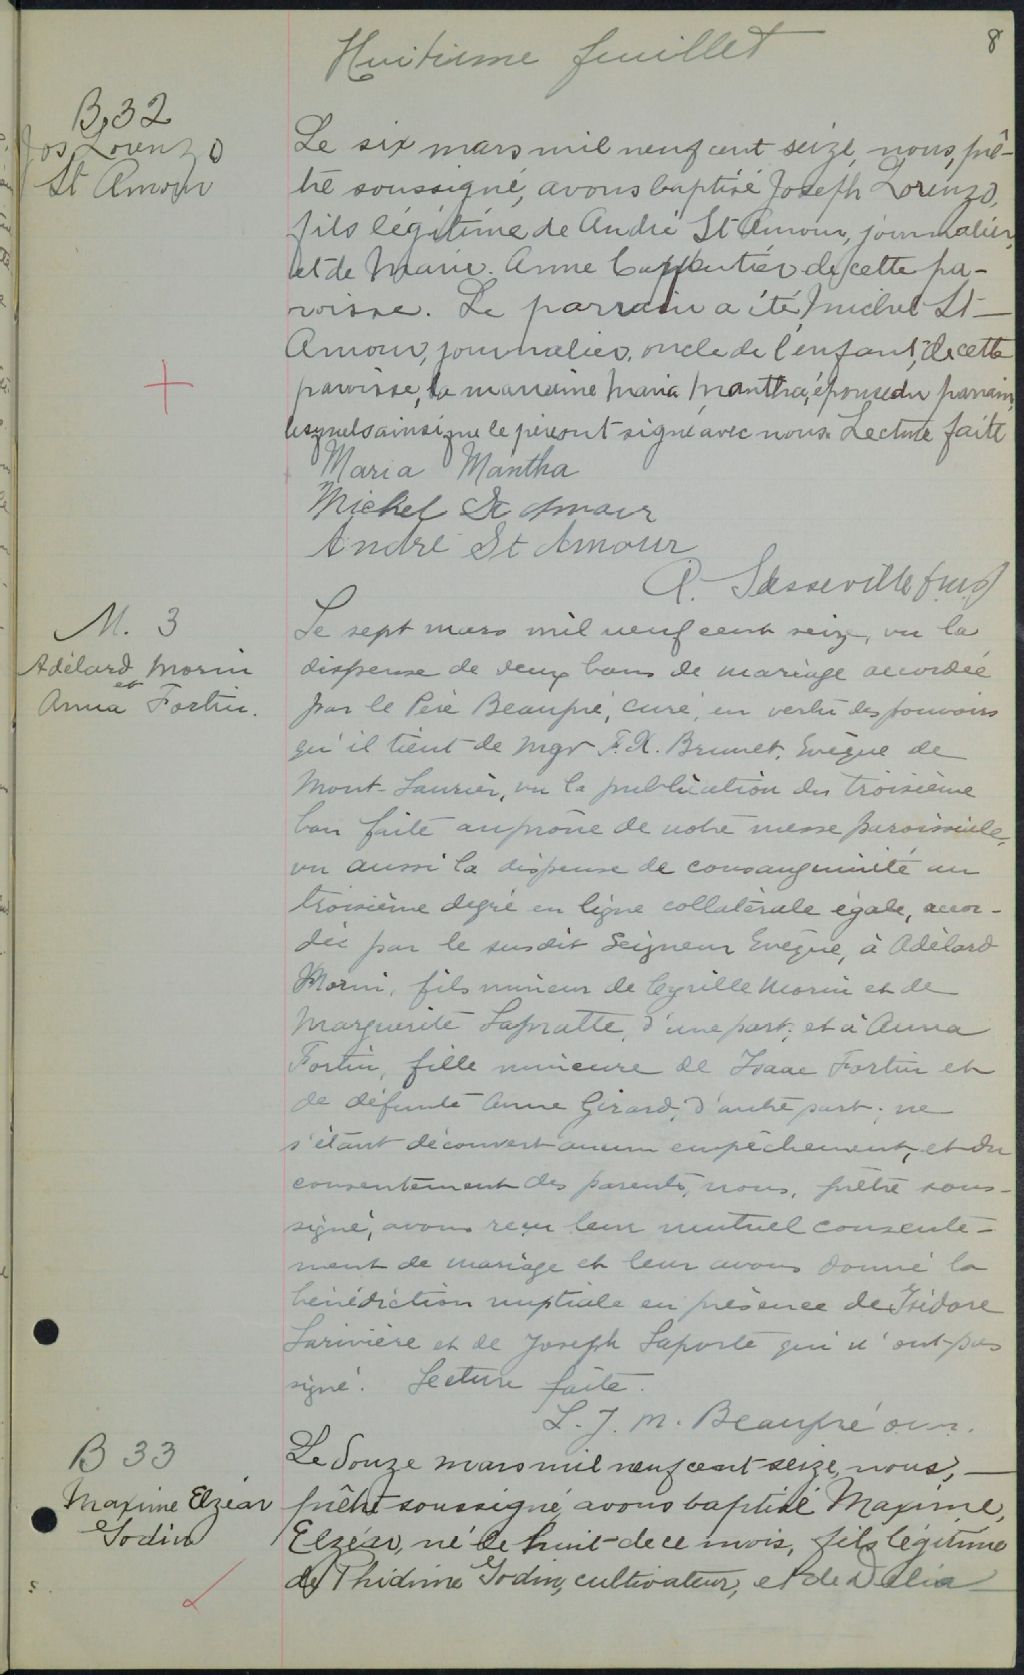 Huitième feuillet
8
B.32
Jos Lorenzo
St Amour
Le six mars mil neuf cent seize, nous, prê-
tre soussigné, avons baptisé Joseph Lorenzo,
fils légitime de André St Amour, journalier,
et de Marie. Anne Carpentier de cette pa-
roisse. Le parrain a été Michel St-
Amour, journalier, oncle de l'enfant, de cette
paroisse, la marraine Maria Mantha, épouse du parrain,
lesquels ainsi que le père ont signé avec nous. Lecture faite
Maria Mantha
Michel St Amour
André St Amour
A. Sasseville
M. 3
Adélard Morin
et
Anna Fortin.
Le sept mars mil neuf cent seize, vu la
dispense de deux bans de mariage accordée
par le Père Beaupré, curé, en vertu des pouvoirs
qu'il tient de Mgr F.X. Brunet, Evêque de
Mont-Laurier, vu la publication du troisième
ban faite au prône de notre messe paroissiale,
vu aussi la dispense de consanguinité au
troisième degré en ligne collatérale égale, accor-
dée par le susdit Seigneur Evêque, à Adélard
Morin, fils mineur de Cyrille Morin et de
Marguerite Lapratte, d'une part; et à Anna
Fortin, fille mineure de Isaac Fortin et
de défunte Anne Girard, d'autre part; ne
s'étant découvert aucun empêchement, et du
consentement des parents, nous, prêtre sous-
signé, avons reçu leur mutuel consente-
ment de mariage et leur avons donné la
bénédiction nuptiale en présence de Isidore
Larivière et de Joseph Laporte qui n'ont pas
signé. Lecture faite.
L. J. M. Beaupré o.m.i.
B 33
Maxime Elzéar
Godin
Le douze mars mil neuf cent seize, nous,
prêtre soussigné, avons baptisé Maxime,
Elzéar, né le huit de ce mois, fils légitime
de Phidime Godin, cultivateur, et de Délia